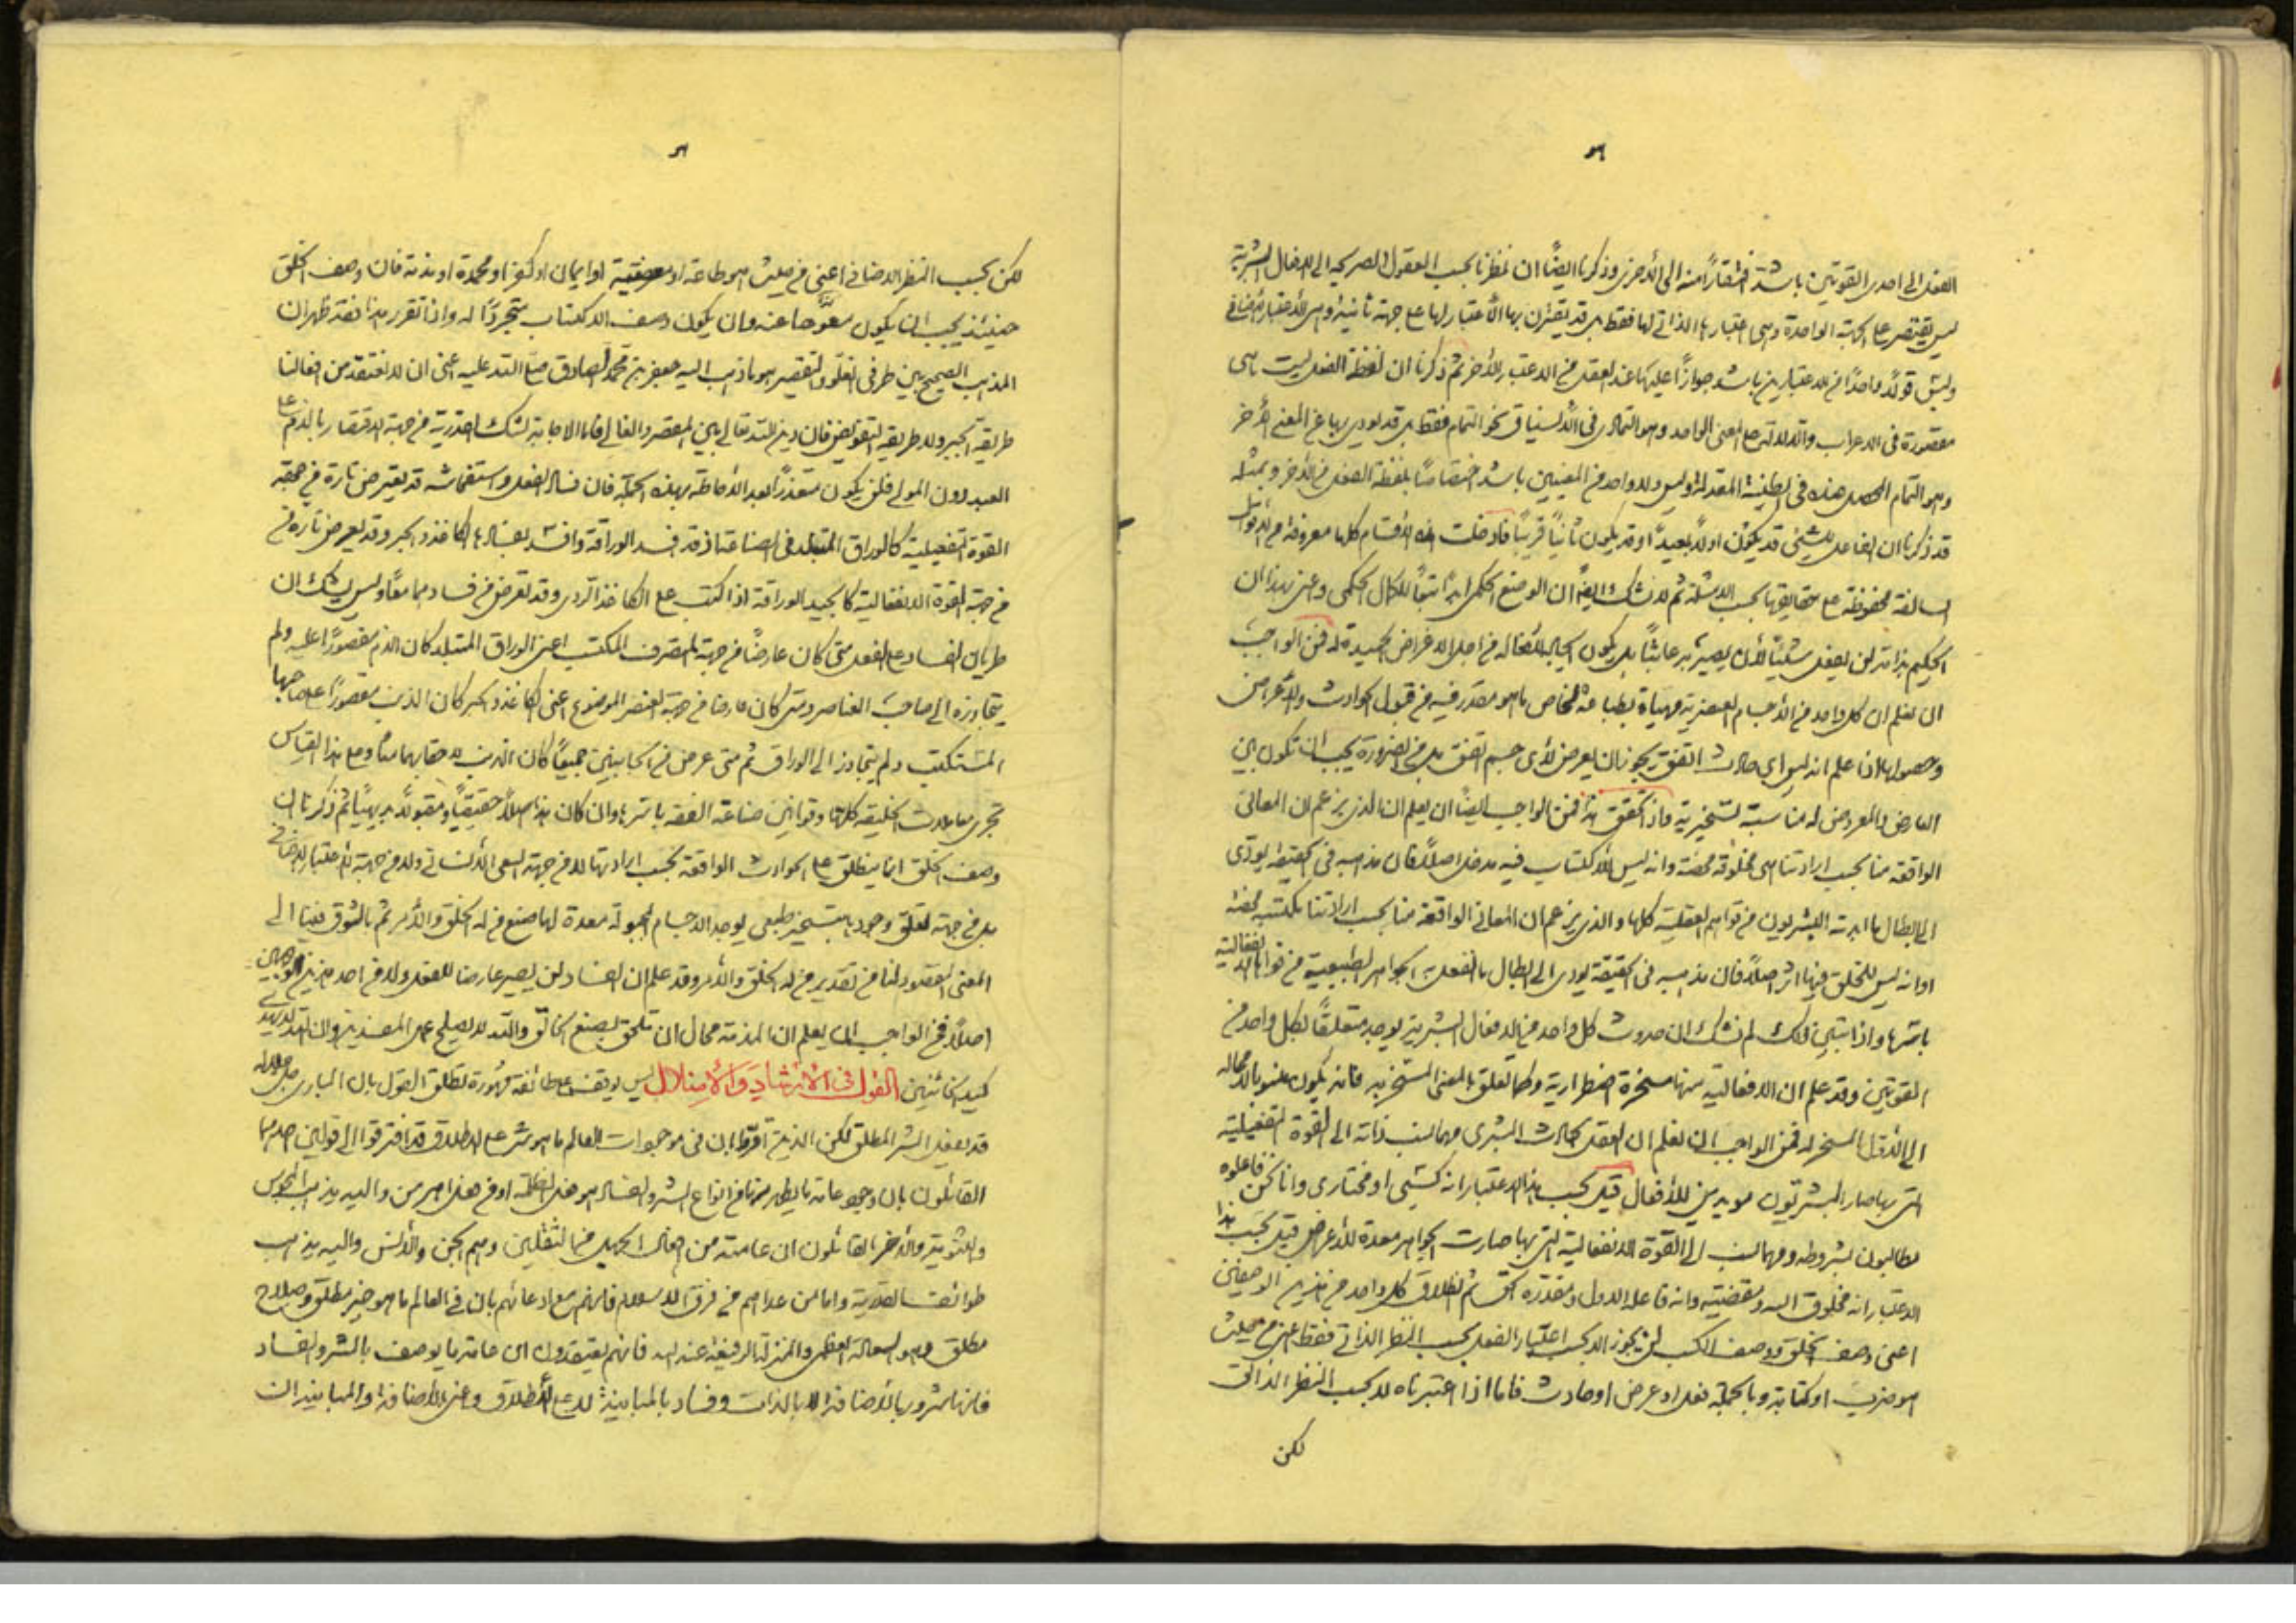 الفعل الى احدى القوتين باشد افتقاراً منه الى الأخرى وذكرنا ايضاً ان نظرنا بحسب العقول الصريحة الى الافعال البشرية
ليس يقتصر على الجهة الواحدة وهى اعتبارها الذاتي لها فقط بل قد يقترن بها الاعتبار لها على جهة ثانية وهى الاعتبار الاضافي
وليس قولاً واحداً من الاعتبارين باشد جوازاً عليها عند العقل من الاعتبار الأخر ثم ذكرنا ان لفظة الفعل ليست هى
مقصورة فى الاعراب والدلالة على المعنى الواحد وهو التمادى فى الانسياق نحو التمام فقط بل قد يودى بها عن المعنى الأخر
وهو التمام وليس ولا واحد من المعنيين باشد اختصاصاً بلفظة الفعل من الأخر وبمثله
قد ذكرنا ان الفاعل للشئ قد يكون اولاً بعيداً وقد يكون ثانياً قريباً الاقسام كلها معروفة من الاقوال
السالفة محفوظة على حقايقها بحسب الامثلة ثم لا نشك ايضاً ان الوضع الحكمى ابداً تبعاً للكمال الحكمى وعنى بهذا ان
الحكيم بذاته لن يفعل شيئاً لأن يصير به عابثاً بل يكون افعاله من اجل الاغراض الحميدة فمن الواجب
ان نعلم ان كل واحد من الأجسام العنصرية مهياة بطباعه الخاص ما هو مقدر فيه من قبول الحوادث والأعراض
وحصولها اذا علم انه ليس اى حادث اتفق يجوز ان يعرض لأى جسم اتفق بل من الضرورة يجب ان تكون بين
العارض والمعروض له مناسبة تسخيرية واذا تحقق هذا فمن الواجب ايضاً ان يعلم ان الذى يزعم ان المعانى
الواقعة منا بحسب ارادتنا هى مخلوقة محضة وانه ليس للأكتساب فيه مدخل اصلاً فان مذهبه فى الحقيقة يودى
الى ابطال ما البشريون من قواهم العقلية كلها والذى يزعم ان المعانى الواقعة منا بحسب ارادتنا مكتسبة محضة
او انه ليس للخلق فيها اثر اصلاً فان مذهبه فى الحقيقة يودى الى ابطال الجواهر الطبيعية من قواها الانفعالية
باسرها واذا تبين ذلك لم نشك ان حدوث كل واحد من الافعال البشرية يوجد متعلقاً بكل واحد من
القوتين وقد علم ان الانفعالية منها مسخرة اضطرارية وكلما تعلق بالمعنى المسخر به فانه يكون منسوباً لا محالة
الى الأول المسخر له فمن الواجب ان نعلم ان العقل البشرى مهما نسب ذاته الى القوة التفعيلية
التى بها صار البشريون مويدين للأفعال قيل بحسب هذا الاعتبار انه كسبى او مختارى وانا نحن فاعلوه
مطالبون بشروطه ومهما نسب الى القوة الانفعالية التى بها صارت الجواهر معدة للأعراض قيل بحسب هذا
الاعتبار انه مخلوق الله ومقضيه وانه فاعله الاول ومقدره الحق ثم اطلاق كل واحد من هذين الوصفين
اعنى وصف الخلق ووصف الكسب لن يجوز الا بحسب اعتبار الفعل بحسب النظر الذاتى فقط اعنى من حيث
هو ضرب او كتابة وبالجملة فعل او عرض او حادث فاما اذا اعتبرناه لا بحسب النظر الذاتى
لكن
لكن بحسب النظر الاضافى اعنى من حيث هو طاعة او معصية او ايمان او كفر او محمدة او مذمة فان وصف الخلق
حينئذ يجب ان يكون معوضا عنه وان يكون وصف الاكتساب متجرداً له واذا تقرر هذا فقد ظهر ان
المذهب الصحيح بين طرفى الغلو والتقصير هو ما ذهب اليه جعفر بن محمد الصادق صلى الله عليه اعنى ان لا نعتقد من افعالنا
طريقة الجبر ولا طريقة التفويض فان دين الله تعالى بين المقصر والغالى فاما الاجابة لشك القدرية من جهة الاقتصار بالذم على
العبد دون المولى فلن يكون متعذراً بعد الأحاطة بهذه الجملة فان فساد الفعل واستفحاشه قد يعترض تارة من جهة
القوة التفعيلية كالوراق المتبلد فى الصناعة اذ قد تفسد الوراقة وان لم يفسد بها الكاغذ والحبر وقد يعرض تارة من
من جهة القوة الانفعالية كالمجيد الوراقة اذا كتب على الكاغذ الردى وقد تعرض من فسادهما معاً وليس يشك ان
طريان الفساد على الفعل متى كان عارضاً من جهة المتصرف المكتب اعنى الوراق المتبلد كان الذم مقصوراً عليه ولم
يتجاوزه الى صاحب العناصر ومتى كان عارضا من جهة العنصر الموضوع اعنى الكاغذ والحبر كان الذم مقصوراً على صاحبها
المستكتب ولم يتجاوز الى الوراق ثم متى عرض من الجانبين جميعاً كان الذنب لاحقا بهما معا وعلى هذا القياس
تجرى معاملات الخليقة كلها وقوانين صناعة الفقه باسرها وان كان هذا اصلاً حقيقياً ومقبولاً بديهياً ثم ذكرنا ان
وصف الخلق انما ينطلق على الحوادث الواقعة بحسب ارادتها لا من جهة السعى الأنسانى ولا من جهة الاعتبار الاضافى
بل من جهة تعلق وجوده بتسخير طبعى يوجد الاجسام المجبولة معدة لها صنع من له الخلق والأمر ثم بالشوق فينا الى
المعنى المقصود لنا من تقدير من له الخلق والأمر وقد علم ان الفساد لن يصير عارضا للفعل ولا من احد هذين الوجهين
اصلاً فمن الواجب ان يعلم ان المذمة محال ان تلحق بصنع الخالق والله لا يصلح عمل المفسدين وان الله لا يهدى
كيد الخائنين القول فى الأرشاد والأضلال ليس يوقف على طائفة مشهورة تطلق القول بان البارى جل جلاله
قد يفعل الشر المطلق لكن الذين اقروا بان فى موجودات العالم ما هو شر على الاطلاق قد افترقوا الى قولين احدهما
القائلون بان وجود عامة ما يظهر منها من انواع الشر والفساد هو فعل الظلمة او من فعل اهرمن واليه يذهب المجوس
والثنوية والأخر القائلون ان عامته من افعال الجهل من الثقلين وهم الجن والأنس واليه يذهب
طوائف القدرية واما من عداهم من فرق الاسلام فانهم مع ادعائهم بان فى العالم ما هو خير مطلق وصلاح
مطلق وهو السعادة العظمى والمنزلة الرفيعة عند الله فانهم يعتقدون ان عامة ما يوصف بالشر والفساد
فانها شرور بالأضافة لا بالذات وفساد بالمباينة لا على الأطلاق وعنى بالأضافة والمباينة ان